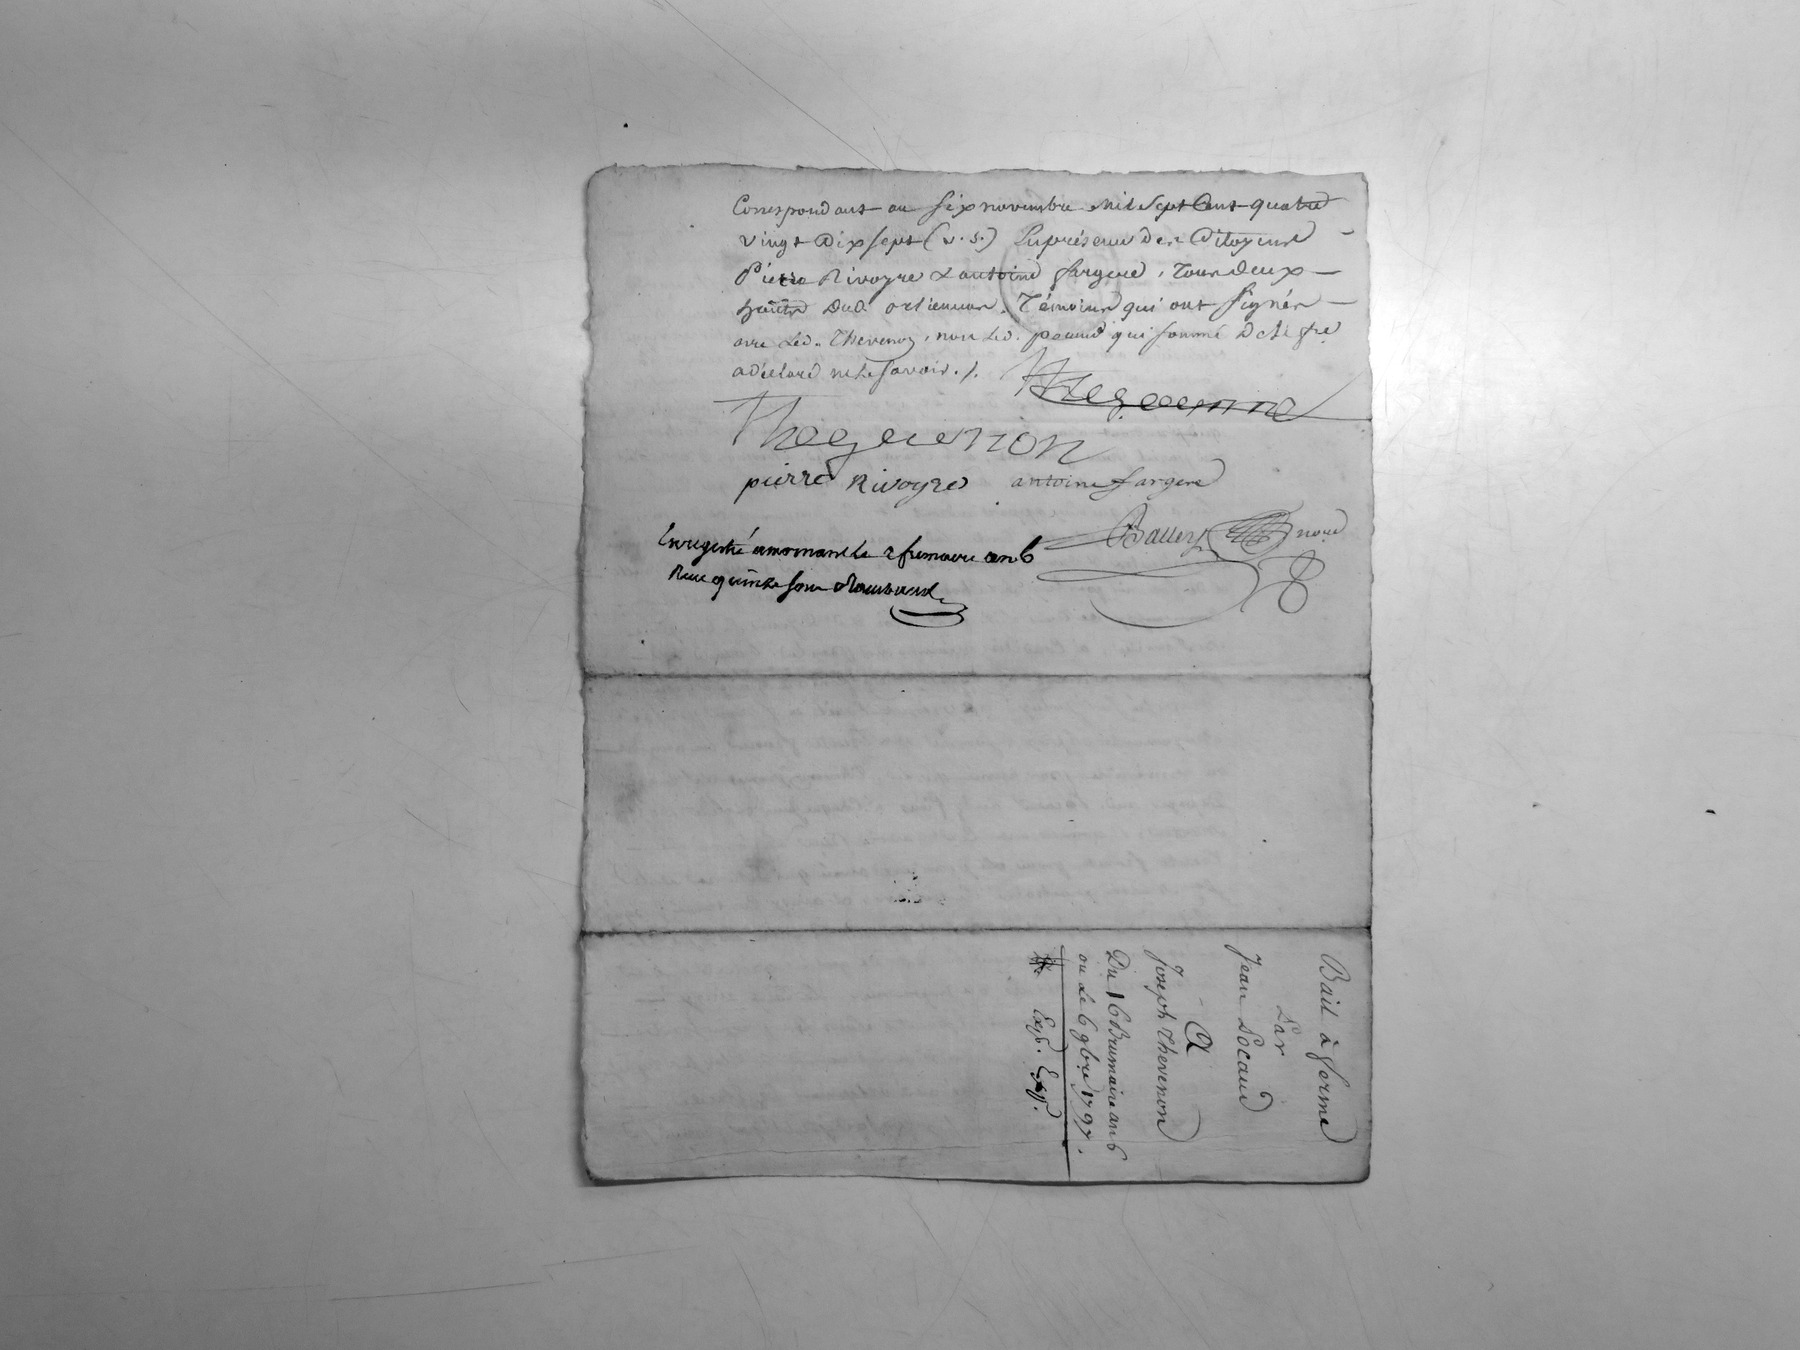 Correspondant au six novembre mil sept Cent quatre
vingt dix sept (v. s.) En présence des Citoyens
Pierre Rivoyre & antoine fargere, Tous deux
hants dud. Témoins qui ont signés
avec Led. Thevenon, non Led. qui sommé De le fre
a déclaré ne le savoir ./.
Thegeuenon
pierre Rivoyre antoine fargere
Ballery nore
Enregistré le 2 frimaire an 6
Recu quinze sous
Bail à ferme
Par
Jean Pocaud
A
Joseph Thevenon
Du 16 Brumaire an 6
ou Le 6 9bre 1797.
Exp. Exp.